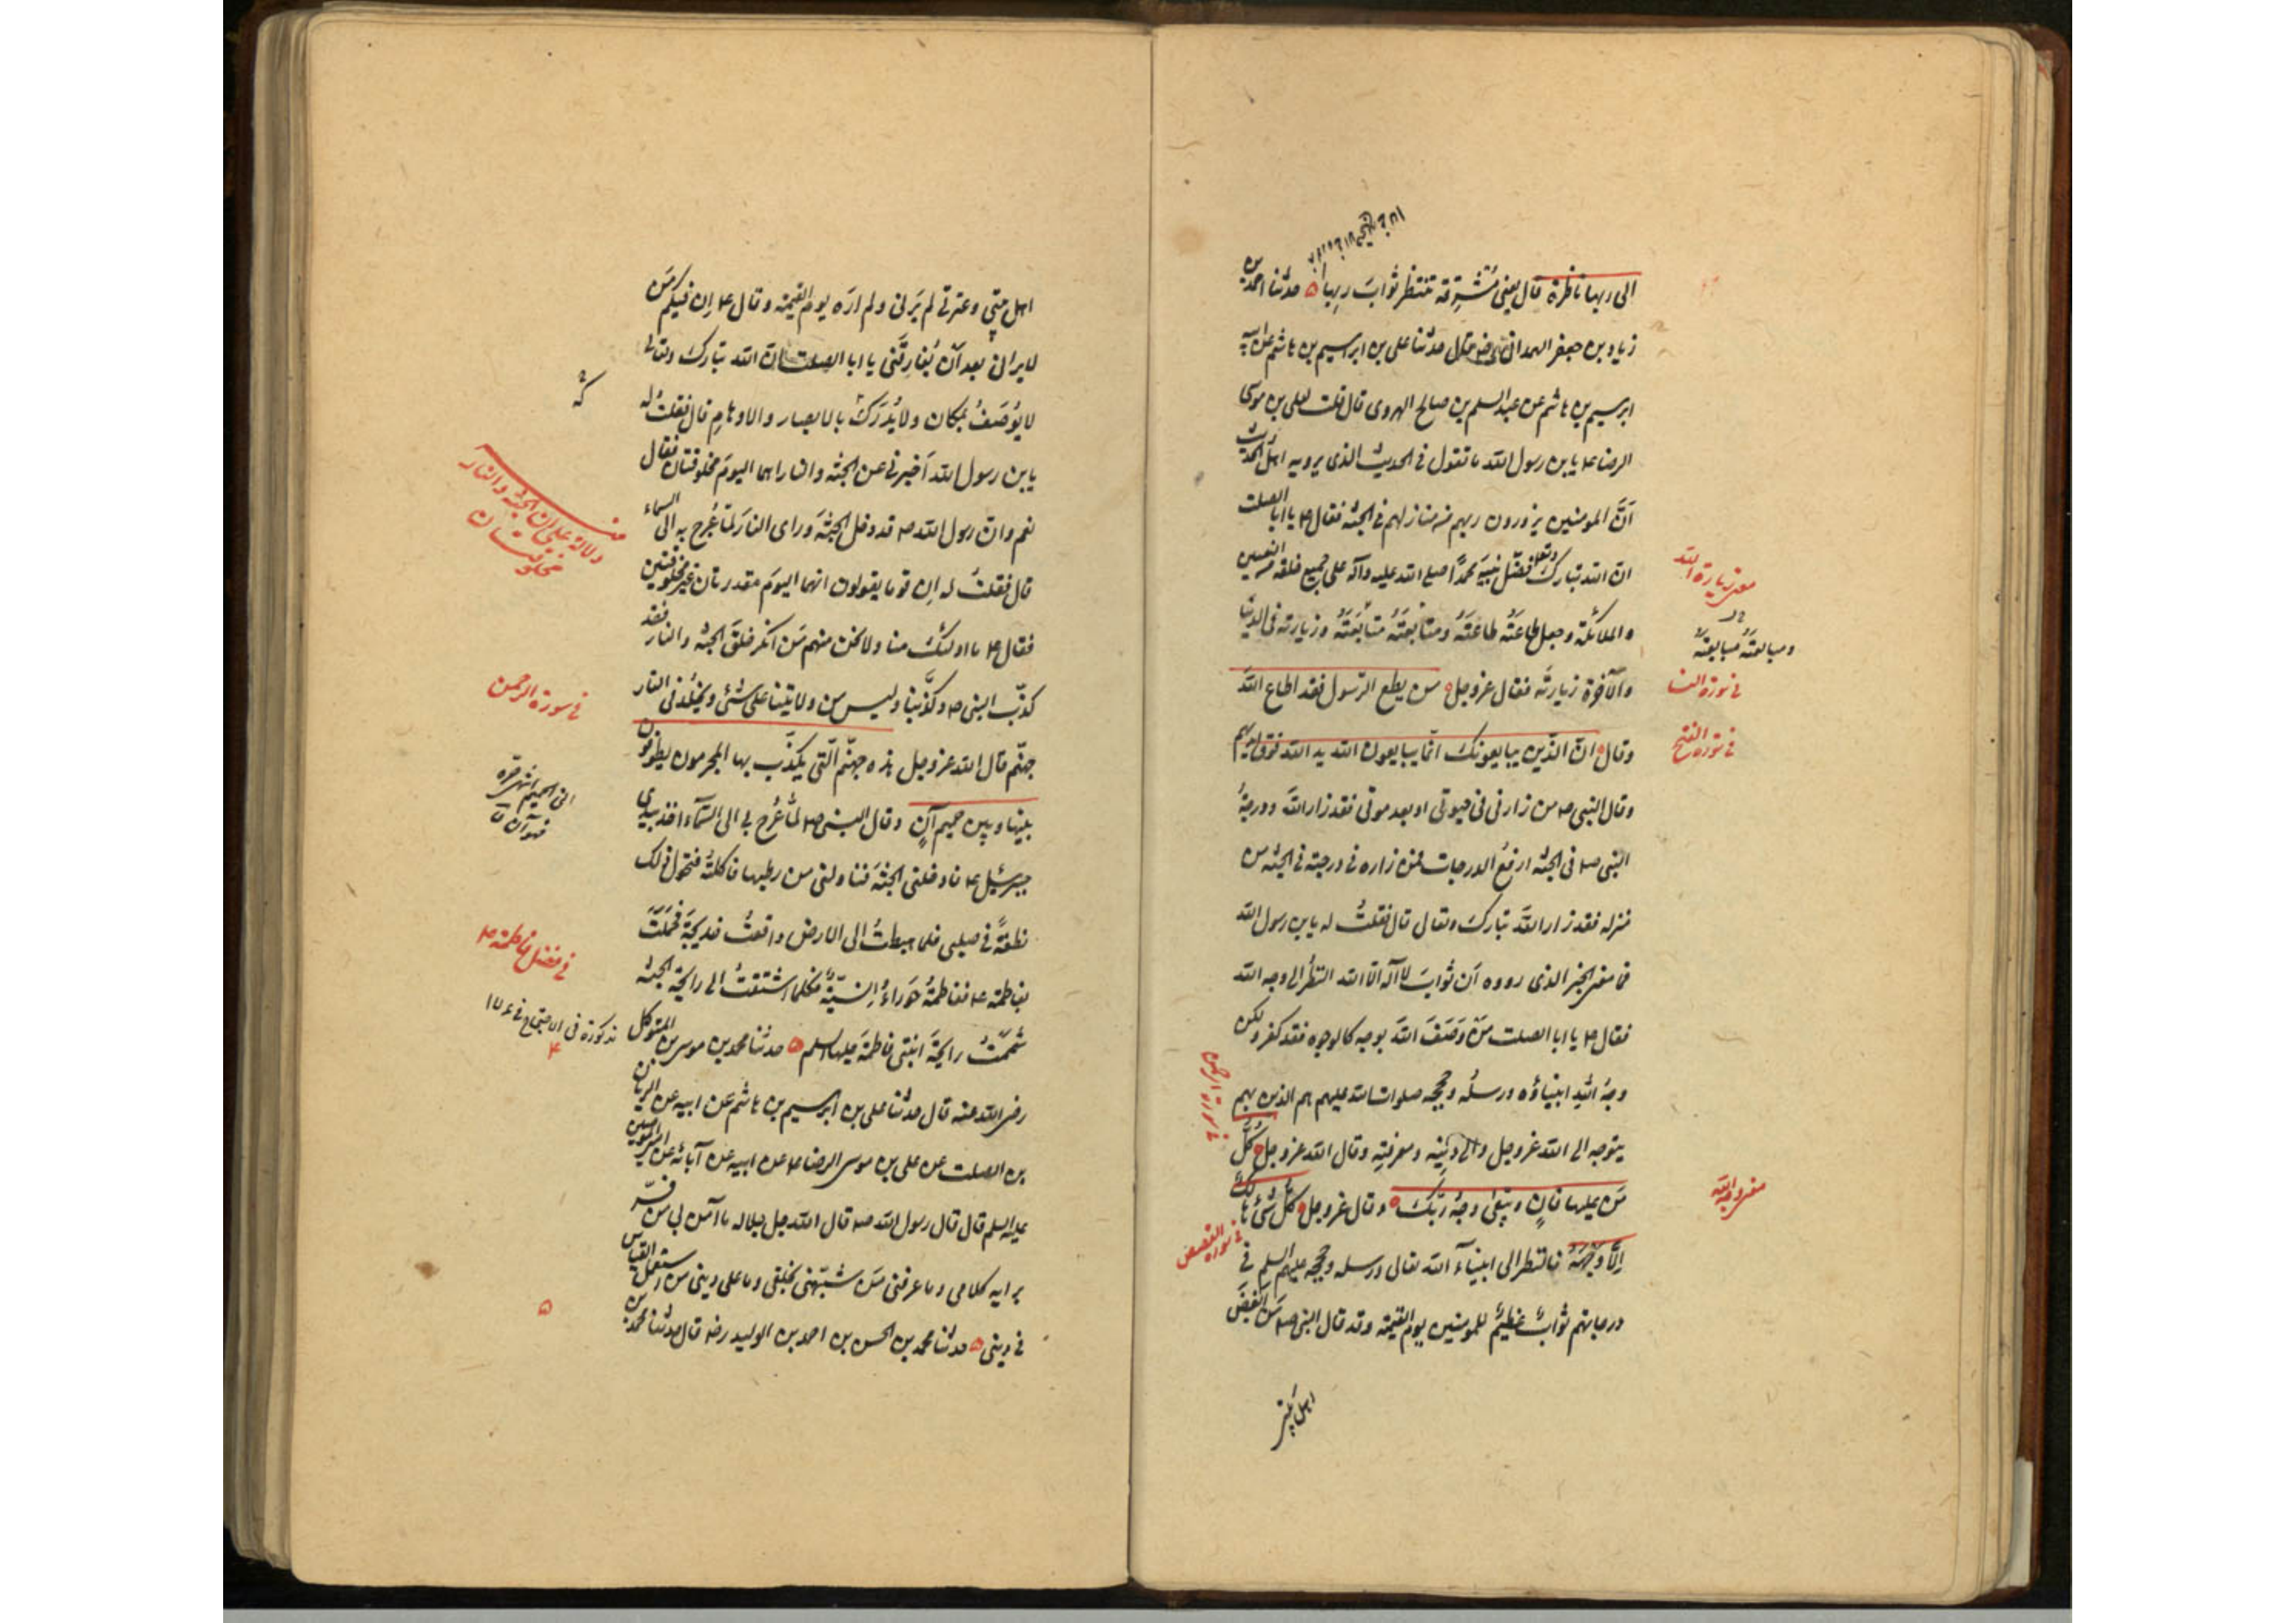 الی ربها ناظرة قال یعنی مُشرِقة تنتظر ثوابَ ربِها ه حدثنا احمد بن
زیاد بن جعفر الهمدانی رضه قال حدثنا علی بن ابرهسیم بن هاشم عن ابیه
ابرهسیم بن هاشم عن عبد السلم بن صالح الهروی قال قلت لعلی بن موسی
الرضا ع یابن رسول الله ما تقول فی الحدیث الذی یرویه اهل الحدیث
اَنّ المومنین یزورون ربهم من منازلهم فی الجنة فقال ع یا ابا الصلت
ان الله تبارک وتعلی فضّل نبیَه محمدًا صلی الله علیه وآله علی جمیع خلقه من النبیین
و الملائکة وجعل طاعَتَه طاعَتَهُ ومتابعَتَهُ متابَعَتَهُ وزیارته فی الدنیا
والآخرة زیارتَه فقال عز وجل من یطع الرّسول فقد اطاع اللهَ
وقال انّ الذّین یبایعونک انّما یبایعون الله ید الله فوق ایدیهم
وقال النبی ص من زارنی فی حیوتی او بعد موتی فقد زار اللهَ ودرجةُ
النبی ص فی الجنة ارفعُ الدرجات فمن زاره فی درجته فی الجنة من
منزله فقد زار اللهَ تبارک وتعالی قال فقلتُ له یابن رسول الله
فما معنی الخبر الذی رووه اَن ثوابَ لا آله الّا الله النظرُ الی وجه الله
فقال ع یا ابا الصلت مَنْ وَصَفَ اللهَ بوجه کالوجوه فقد کفر ولکن
وجهُ اللهِ انبیاؤه ورسلُه وحججه صلوات الله علیهم هم الذین بهم
یتوجه الی الله عز وجل والی دینِه ومعرفتِه وقال الله عز وجل کُلُّ
مَن علیها فانٍ ویبقی وجهُ ربّک وقال عز وجل کُلُّ شئ هالکٌ
اِلّا وَجْهَهُ فالنظر الی انبیآء الله تعالی ورسله وحججه علیهم السلم فی
درجاتهم ثوابٌ عظیمٌ للمومنین یوم القیمة وقد قال النبی ص مَن اَبغضَ
معنی زیارة الله
ومبایعتَهُ مبایعتَهُ
فی سورة النسا
فی سورة الفتح
فی سورة الرحمن
معنی وجه الله
فی سورة القصص
اهل بیتی
اهل بیتی وعترتی لم یَرَنی ولم اَرَه یومَ القیمة وقال ع اِن فیکم مَن
لا یرانی بعد اَن یُفارِقَنی یا ابا الصلت اِنّ الله تبارک وتعالی
لا یُوصَفُ بمکان ولا یُدْرَکُ بالابصار والاوهامِ قال فقلتُ له
یابن رسول الله اَخبِرنی عن الجنة والنار اهما الیومَ مخلوقتان فقال
نعم وان رسول الله ص قد دخل الجنةَ ورای النارَ لمّا عُرِج به الی السماء
قال فقلتُ له اِن قوما یقولون انهما الیومَ مقدرتان غیر مخلوقتین
فقال ع ما اولئک منا ولا نحن منهم مَن انکر خلقَ الجنة والنار فقد
کذّب النبی ص وکذّبنا ولیس من ولایتنا علی شئ ویُخلّد فی النار
جهنّم قال الله عز وجل هذه جهنّم الّتی یکذّب بها المجرمون یطوفون
بینها وبین حمیم آنٍ وقال النبی ص لمّا عُرِج بی الی السّمآء اخذ بیدی
جبرئیل ع فادخلنی الجنةَ فناولنی من رطبها فاکلتُه فتحوّل ذلک
نطفةً فی صلبی فلما هبطتُ الی الارض واقعتُ خدیجةَ فحَمَلَتْ
بفاطمة ع ففاطمةُ حَوراءُ اِنسیّةٌ فکلما اشتقتُ الی رایحة الجنة
شَمَمْتُ رایحةَ ابنتی فاطمةَ علیها السلم ه حدثنا محمد بن موسی بن المتوکل
رضی الله عنه قال حدثنا علی بن ابرهسیم بن هاشم عن ابیه عن الریان
بن الصلت عن علی بن موسی الرضا ع عن ابیه عن آبائه عن امیر المومنین
علیه السلم قال قال رسول الله ص قال الله جل جلاله ما آمن بی من فسّر
برایه کلامی وما عرفنی مَن شبّهنی بخلقی وما علی دینی من استعمل القیاس
فی دینی ه حدثنا محمد بن الحسن بن احمد بن الولید رضه قال حدثنا محمد بن
دلالة علی ان الجنة والنار
مخلوقتان
فی سورة الرحمن
انی الحمیم انتهی حره
فهو آن ق
فی فضل فاطمة ع
مذکورة فی الاحتجاج فی